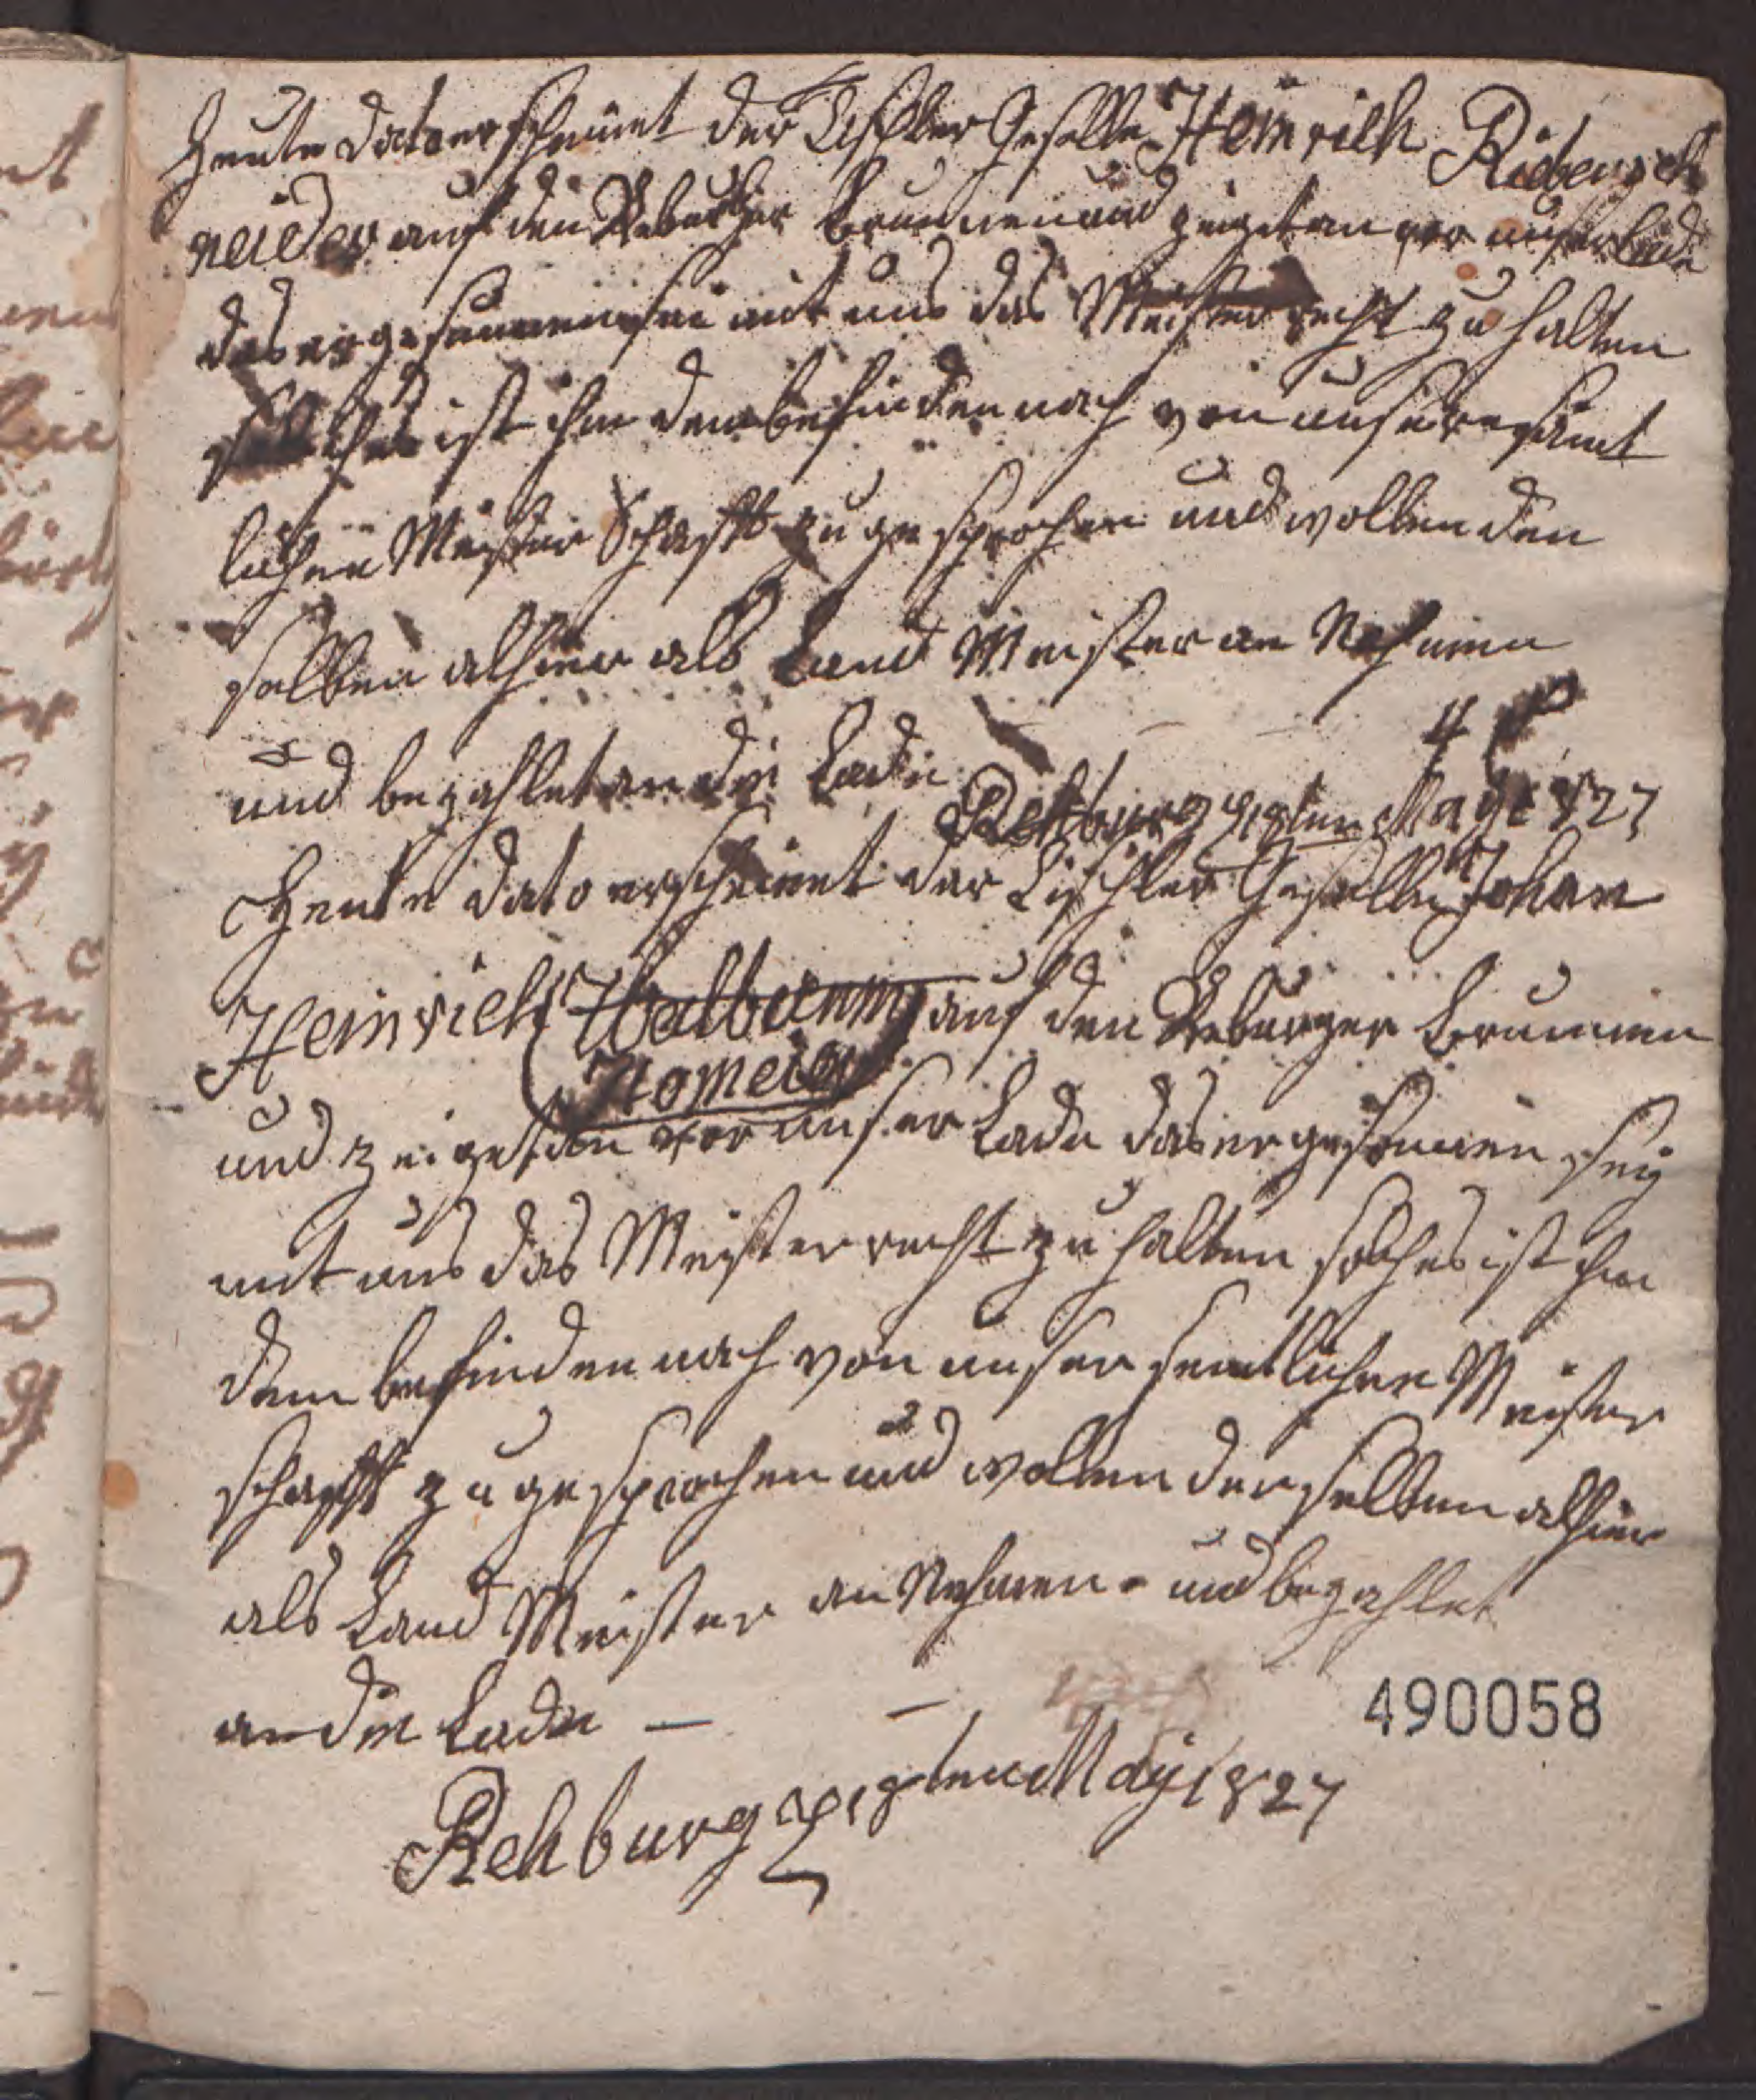 Heute dato erscheinet der Tischler Geselle Heinrich Riebensch
neider auf den Reburger Brunnen und zeiget an vor unser Lade
das er gesonnen sei mit uns das Meister recht zu halten
solches ist ihm dem befinden nach von unsere sämt
lichen Meister Schafft zu gesprochen und wollen den
selben alhier als Land Meister an Nehmen
und bezahlet an die Lade 4
Rehburg 18ten May 1827
Heute dato erscheinet der Tischler Geselle Johan
Heinrich auf den Reburger Brunnen
Homeier
und zeiget an vor unser Lade das er gesonnen sey
mit uns das Meister recht zu halten solches ist ihm
dem befinden nach von unser semtlichen Meister
schafft zu gesprochen und wollen denselben alhier
als Land Meister an Nehmen - und bezahlet
an die Lade — —
490058
Rehburg 18ten May 1827